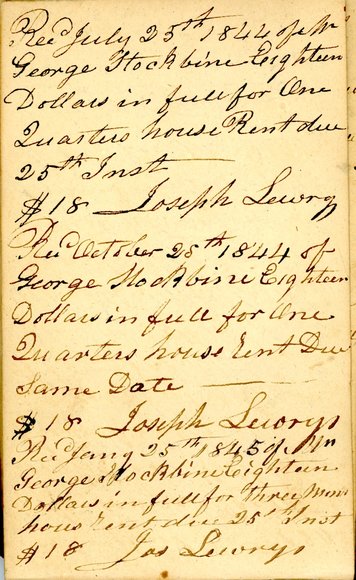 Recd July 25th 1844 of Mr
George Stockbine Eighteen
Dollars in full for One
Quarters house Rent due
25th Inst
$18 Joseph Lewry
Recd October 25th 1844 of
George Stockbine Eighteen
Dollars in full for One
Quarters house rent Due
Same Date
$18 Joseph Lewrys
Recd Jany 25th 1845 of Mr
George Stockbine Eighteen
Dollars in full for three Mon
hous rent due 25th Inst
$18 Jos Lewrys